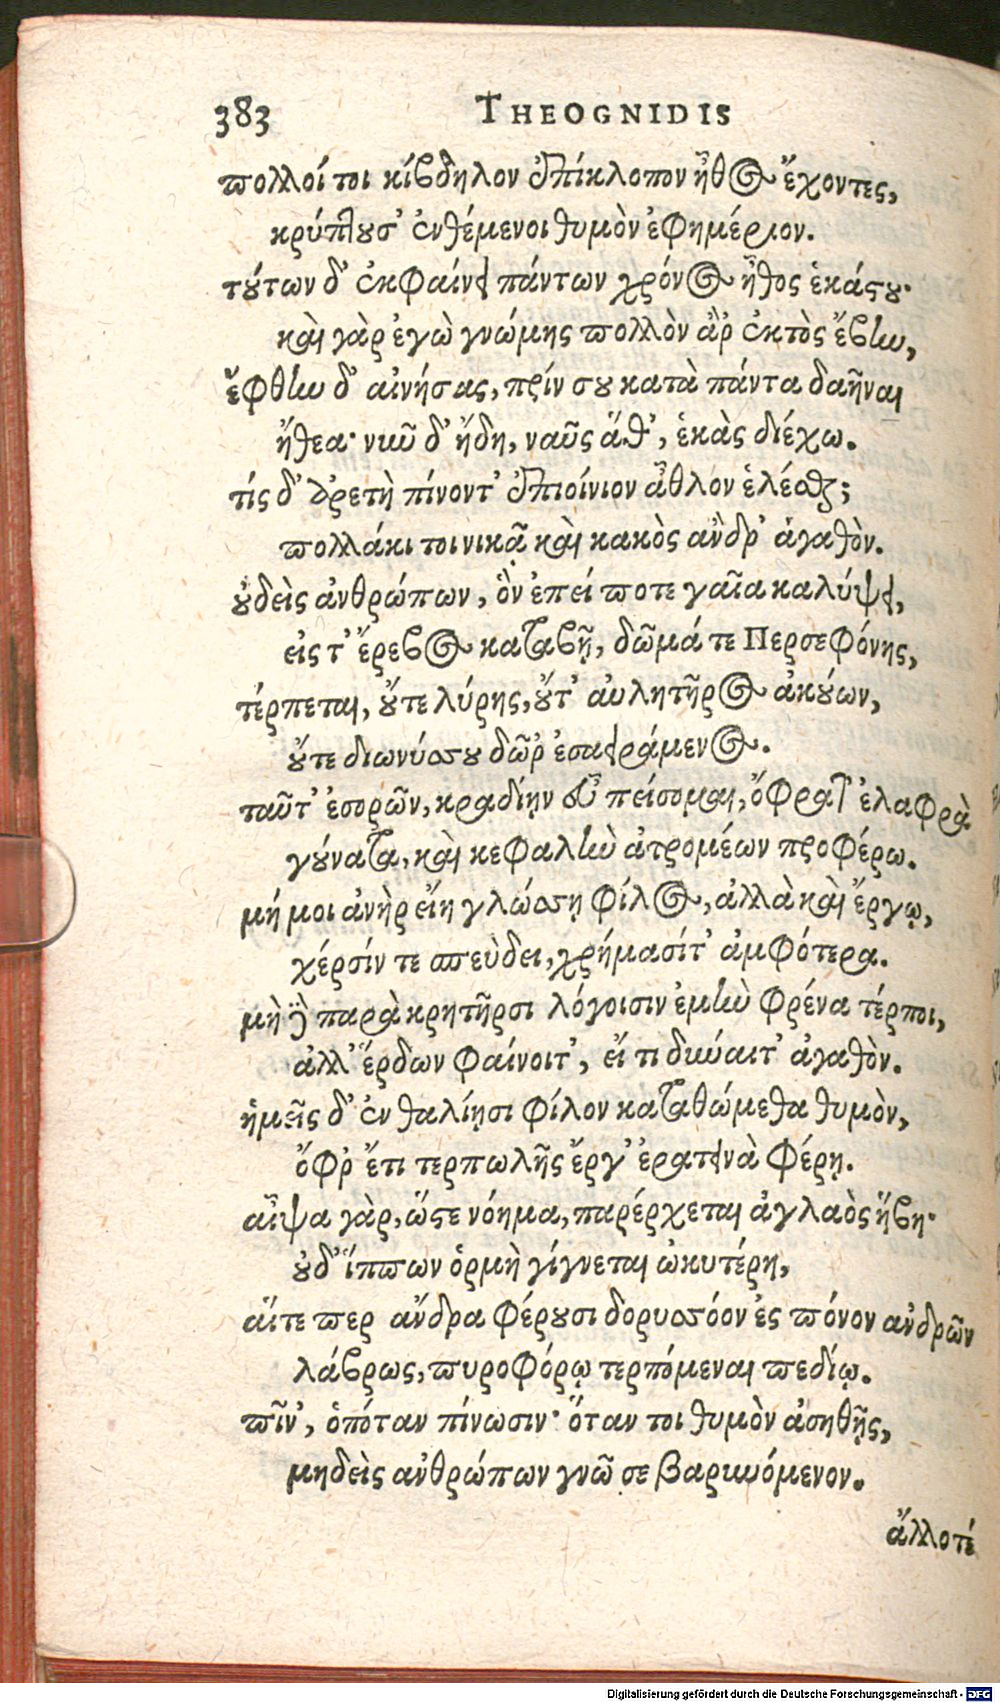 383 THEOGNIDIS
πολλοί τοι κίβδηλον ἐπίκλοπον ἦθος ἔχοντες,
κρύπτουσ' ἐνθέμενοι θυμὸν ἐφημέριον.
τούτων δ' ἐκφαίνει πάντων χρόνος ἦθος ἑκάστου·
καὶ γὰρ ἐγὼ γνώμης πολλὸν ἄρ' ἐκτὸς ἔβην,
ἔφθην δ' αἰνήσας, πρίν σου κατὰ πάντα δαῆναι
ἤθεα· νῦν δ' ἤδη, ναῦς ἅθ', ἑκὰς διέχω.
τίς δ' ἀρετὴ πίνοντ' ἐπιοίνιον ἆθλον ἑλέσθαι;
πολλάκι τοι νικᾷ καὶ κακὸς ἄνδρ' ἀγαθόν.
οὐδεὶς ἀνθρώπων, ὃν ἐπεί ποτε γαῖα καλύψει,
εἰς τ' ἔρεβος καταβῇ, δῶμά τε Περσεφόνης,
τέρπεται, οὔτε λύρης, οὔτ' αὐλητῆρος ἀκούων,
οὔτε διωνύσου δῶρ' ἐσαειράμενος.
ταῦτ' ἐσορῶν, κραδίην εὖ πείσομαι, ὄφρα τ' ἐλαφρὰ
γούνατα, καὶ κεφαλὴν ἀτρομέων προφέρω.
μή μοι ἀνὴρ εἴη γλώσσῃ φίλος, ἀλλὰ καὶ ἔργῳ,
χέρσίν τε σπεύδει, χρήμασίτ' ἀμφότερα.
μὴ δὲ παρὰ κρητῆρσι λόγοισιν ἐμὴν φρένα τέρποι,
ἀλλ' ἕρδων φαίνοιτ', εἴ τι δύναιτ' ἀγαθὸν.
ἡμεῖς δ' ἐν θαλίῃσι φίλον καταθώμεθα θυμὸν,
ὄφρ' ἔτι τερπωλῆς ἔργ' ἐρατεινὰ φέρῃ.
αἶψα γὰρ, ὥστε νόημα, παρέρχεται ἀγλαὸς ἥβη·
οὐδ' ἵππων ὁρμὴ γίγνεται ὠκυτέρη,
αἵτε περ ἄνδρα φέρουσι δορυσσόον ἐς πόνον ἀνδρῶν
λάβρως, πυροφόρῳ τερπόμεναι πεδίῳ.
πῖν', ὁπόταν πίνωσιν· ὅταν τοι θυμὸν ἀσηθῇς,
μηδεὶς ἀνθρώπων γνῶ σε βαρυνόμενον.
ἄλλοτέ
Digitalisierung gefördert durch die Deutsche Forschungsgemeinschaft - DFG